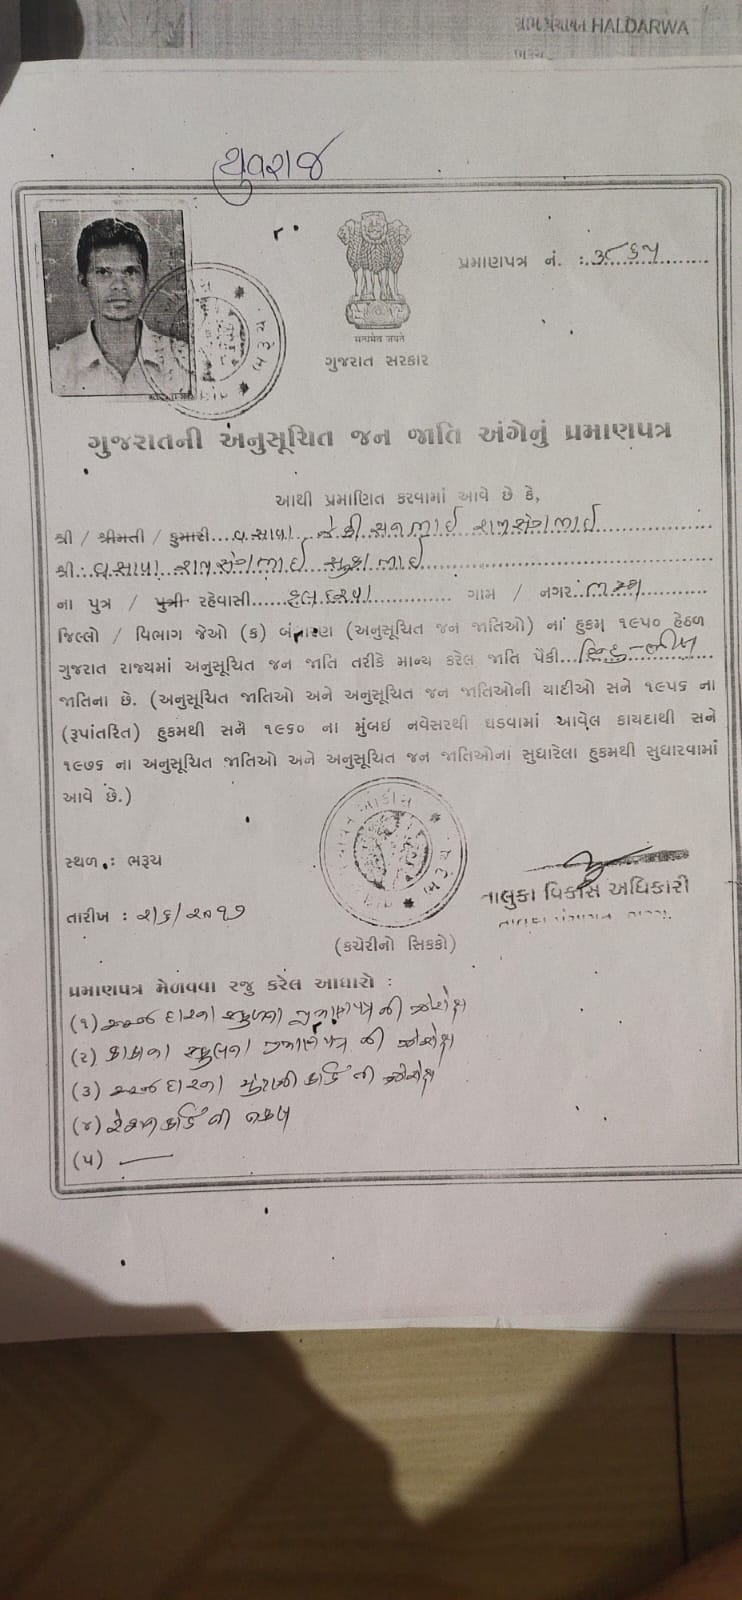 ગ્રામ પંચાયત HALDARWA
ભરૂચ
યુવરાજ
પ્રમાણપત્ર નં. : ૩૮૬૫
सत्यमेव जयते
ગુજરાત સરકાર
ગુજરાતની અનુસૂચિત જન જાતિ અંગેનું પ્રમાણપત્ર
આથી પ્રમાણિત કરવામાં આવે છે કે,
શ્રી / શ્રીમતી / કુમારી.. વસાવા
શ્રી : વસાવા
ના પુત્ર / પુત્રી રહેવાસી.. હલદરવા ગામ / નગર ભરૂચ
જિલ્લો / વિભાગ જેઓ (ક) બંધારણ (અનુસૂચિત જન જાતિઓ) નાં હુકમ ૧૯૫૦ હેઠળ
ગુજરાત રાજ્યમાં અનુસૂચિત જન જાતિ તરીકે માન્ય કરેલ જાતિ પૈકી.. હિન્દુ-ભીલ
જાતિના છે. (અનુસૂચિત જાતિઓ અને અનુસૂચિત જન જાતિઓની યાદીઓ સને ૧૯૫૬ ના
(રૂપાંતરિત) હુકમથી સને ૧૯૬૦ ના મુંબઈ નવેસરથી ઘડવામાં આવેલ કાયદાથી સને
૧૯૭૬ ના અનુસૂચિત જાતિઓ અને અનુસૂચિત જન જાતિઓનાં સુધારેલા હુકમથી સુધારવામાં
આવે છે.)
સ્થળ : ભરૂચ
તાલુકા વિકાસ અધિકારી
તારીખ : ૨/૬/૨૦૧૭
(કચેરીનો સિક્કો)
પ્રમાણપત્ર મેળવવા રજુ કરેલ આધારો :
(૧) અરજદારના સ્કુલના પ્રમાણપત્ર ની ઝેરોક્ષ
(૨) સ્કુલના પ્રમાણપત્ર ની ઝેરોક્ષ
(૩) અરજદારના ચુંટણી કાર્ડ ની ઝેરોક્ષ
(૪) રેશનકાર્ડ ની નકલ
(૫) —